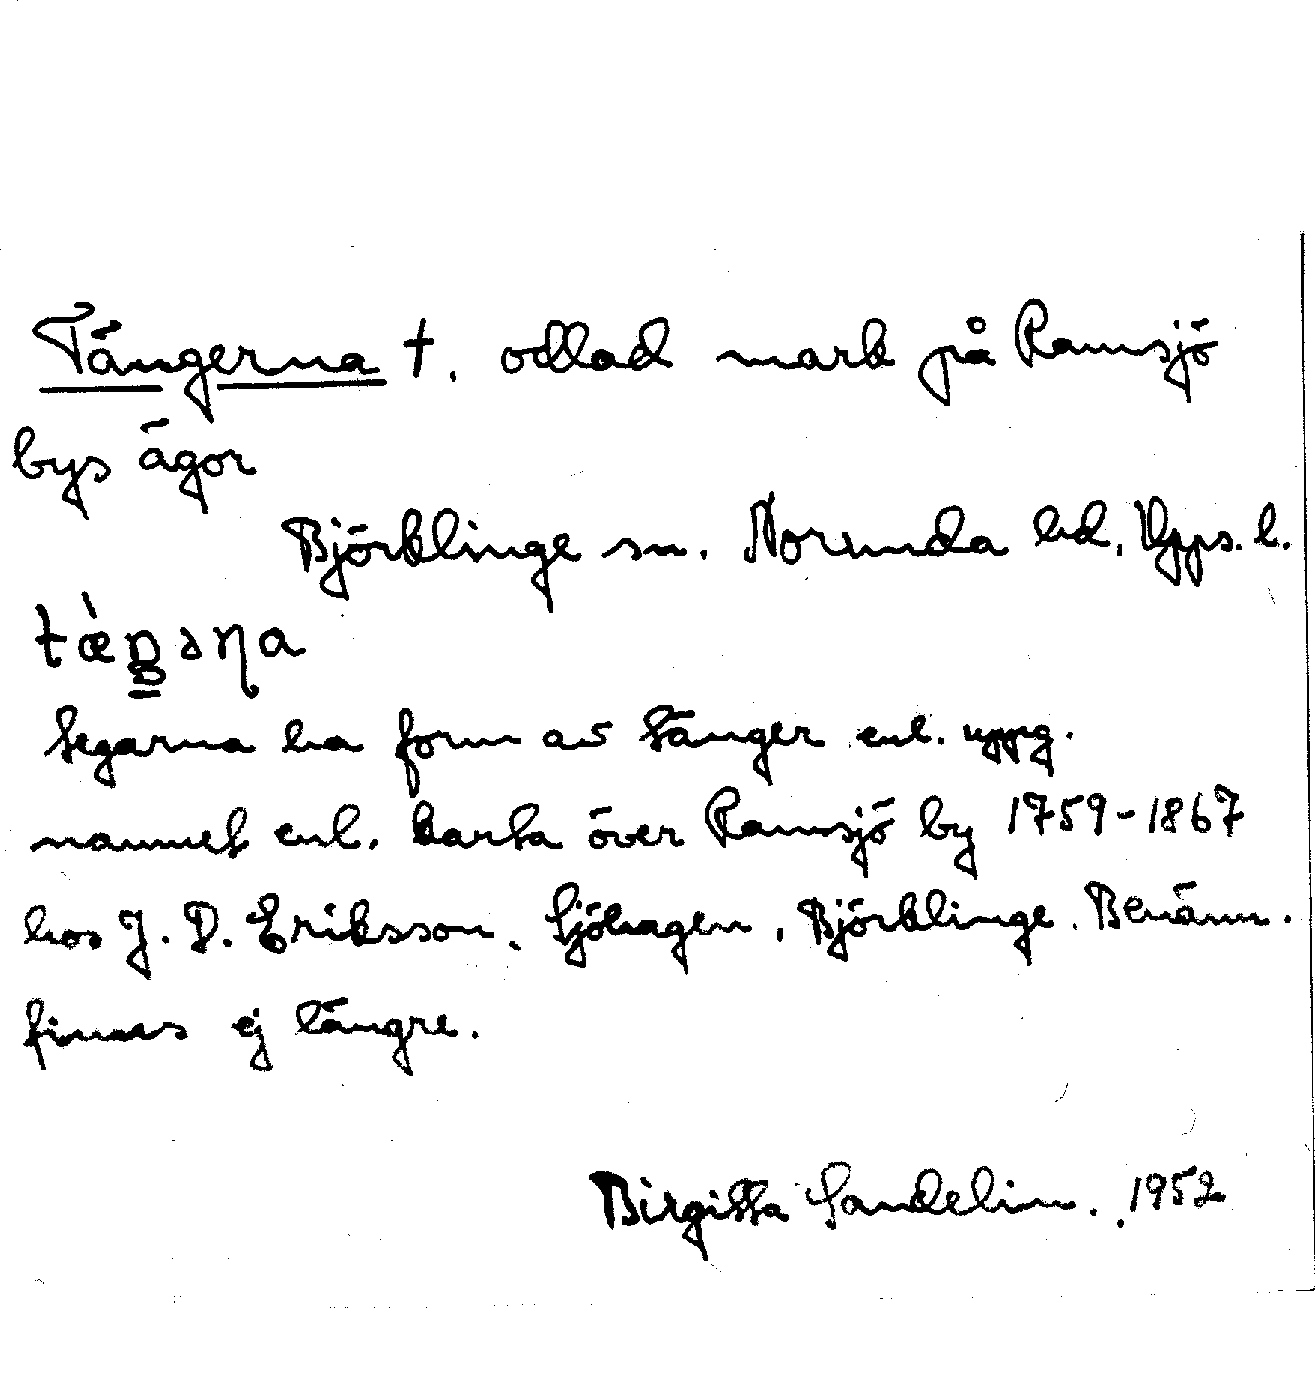 Tängerna †. odlad mark på Ramsjö
bys ägor
Björklinge sn. Norunda hd, Upps. l.
tæ̀ŋəɳa
tegarna ha form av tänger enl. uppg.
namnet enl. karta över Ramsjö by 1759-1867
hos J. D. Eriksson, Sjöhagen, Björklinge. Benämn.
finnes ej längre.
Birgitta Sandelin. 1952